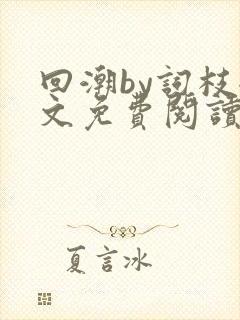 回潮by词枝
文免費閱讀
夏言冰